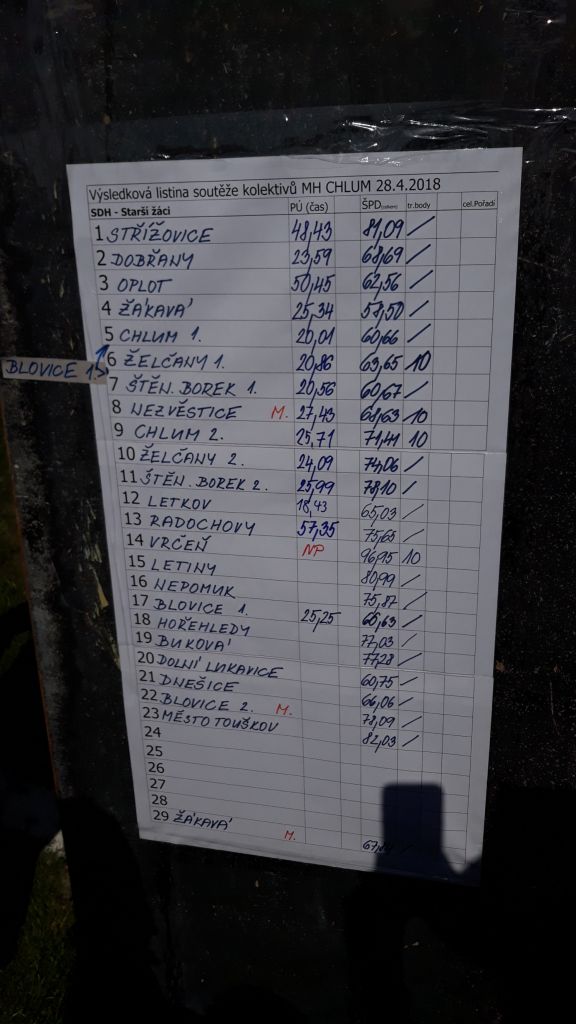 Výsledková listina soutěže kolektivů MH CHLUM 28.4.2018
SDH - Starší žáci PÚ (čas) ŠPD(celkem) tr.body cel.Pořadí
1 STŘÍŽOVICE 48,43 81,09 /
2 DOBŘANY 23,59 68,69 /
3 OPLOT 50,45 62,56 /
4 ŽÁKAVÁ 25,34 58,50 /
5 CHLUM 1. 20,01 60,66 /
BLOVICE 1.
6 ŽELČANY 1. 20,86 63,65 10
7 ŠTĚN. BOREK 1. 20,56 60,67 /
8 NEZVĚSTICE M. 27,43 68,63 10
9 CHLUM 2. 25,71 71,41 10
10 ŽELČANY 2. 24,09 74,06 /
11 ŠTĚN. BOREK 2. 25,99 78,10 /
12 LETKOV 18,43 65,03 /
13 RADOCHOVY 57,35 75,65 /
14 VRČEŇ NP 96,95 10
15 LETINY 80,99 /
16 NEPOMUK 75,87 /
17 BLOVICE 1. 25,25 65,63 /
18 HOŘEHLEDY 77,03 /
19 BUKOVÁ 77,28 /
20 DOLNÍ LUKAVICE 60,75 /
21 DNEŠICE 66,06 /
22 BLOVICE 2. M. 78,09 /
23 MĚSTO TOUŠKOV 82,03 /
24
25
26
27
28
29 ŽÁKAVÁ M.